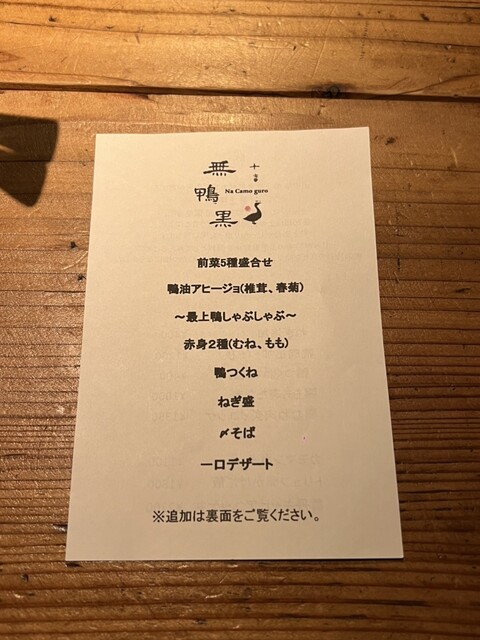 無鴨黒
Na Camo guro
前菜5種盛合せ
鴨油アヒージョ(椎茸、春菊)
～最上鴨しゃぶしゃぶ～
赤身2種(むね、もも)
鴨つくね
ねぎ盛
〆そば
一口デザート
※追加は裏面をご覧ください。